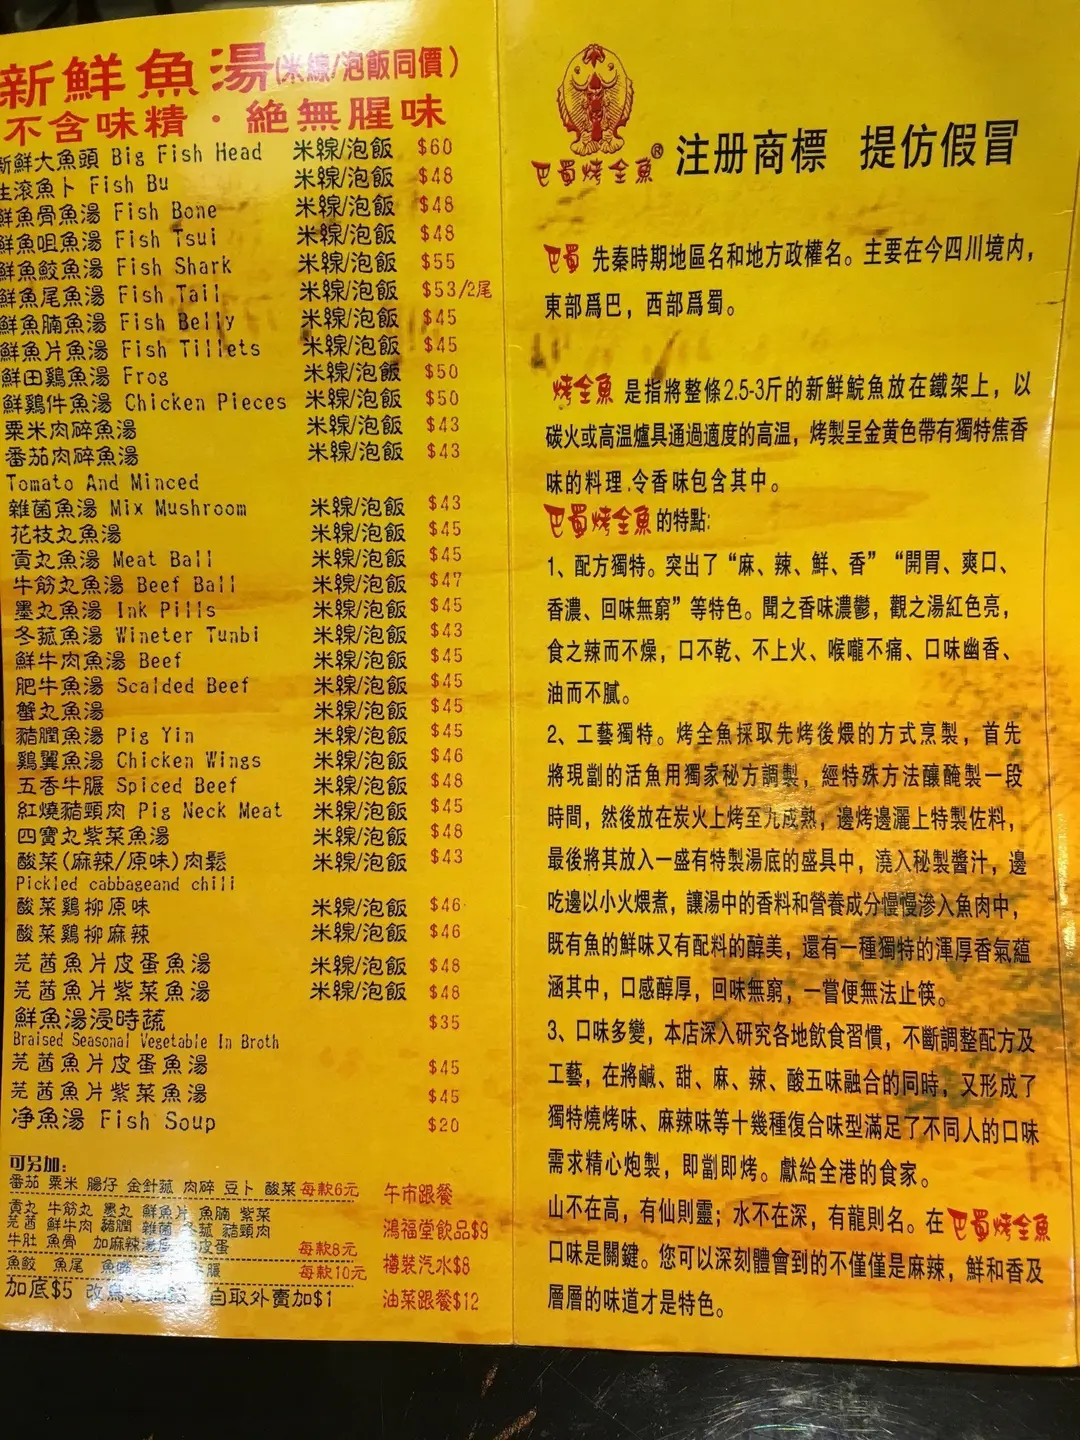 新鮮魚湯(米線/泡飯同價)
不含味精·絕無腥味
新鮮大魚頭 Big Fish Head 米線/泡飯 $60
生滾魚卜 Fish Bu 米線/泡飯 $48
鮮魚骨魚湯 Fish Bone 米線/泡飯 $48
鮮魚咀魚湯 Fish Tsui 米線/泡飯 $48
鮮魚餃魚湯 Fish Shark 米線/泡飯 $55
鮮魚尾魚湯 Fish Tail 米線/泡飯 $53/2尾
鮮魚腩魚湯 Fish Belly 米線/泡飯 $45
鮮魚片魚湯 Fish Tillets 米線/泡飯 $45
鮮田鷄魚湯 Frog 米線/泡飯 $50
鮮鷄件魚湯 Chicken Pieces 米線/泡飯 $50
粟米肉碎魚湯 米線/泡飯 $43
番茄肉碎魚湯 米線/泡飯 $43
Tomato And Minced
雜菌魚湯 Mix Mushroom 米線/泡飯 $43
花枝丸魚湯 米線/泡飯 $45
貢丸魚湯 Meat Ball 米線/泡飯 $45
牛筋丸魚湯 Beef Ball 米線/泡飯 $47
墨丸魚湯 Ink Pills 米線/泡飯 $45
冬菰魚湯 Wineter Tunbi 米線/泡飯 $43
鮮牛肉魚湯 Beef 米線/泡飯 $45
肥牛魚湯 Scalded Beef 米線/泡飯 $45
蟹丸魚湯 米線/泡飯 $45
豬潤魚湯 Pig Yin 米線/泡飯 $45
鷄翼魚湯 Chicken Wings 米線/泡飯 $46
五香牛𦟌 Spiced Beef 米線/泡飯 $48
紅燒豬頸肉 Pig Neck Meat 米線/泡飯 $45
四寶丸紫菜魚湯 米線/泡飯 $48
酸菜(麻辣/原味)肉鬆 米線/泡飯 $43
Pickled cabbageand chili
酸菜鷄柳原味 米線/泡飯 $46
酸菜鷄柳麻辣 米線/泡飯 $46
芫茜魚片皮蛋魚湯 米線/泡飯 $48
芫茜魚片紫菜魚湯 米線/泡飯 $48
鮮魚湯浸時蔬 $35
Braised Seasonal Vegetable In Broth
芫茜魚片皮蛋魚湯 $45
芫茜魚片紫菜魚湯 $45
净魚湯 Fish Soup $20
可另加:
番茄 粟米 腸仔 金針菰 肉碎 豆卜 酸菜 每款6元
貢丸 牛筋丸 墨丸 鮮魚片 魚腩 紫菜
芫茜 鮮牛肉 豬潤 雜菌 冬菰 豬頸肉
牛肚 魚骨 加麻辣湯 皮蛋 每款8元
魚餃 魚尾 魚 每款10元
加底$5 改 自取外賣加$1
午市跟餐
鴻福堂飲品$9
樽裝汽水$8
油菜跟餐$12
巴蜀烤全魚® 注册商標 提仿假冒
巴蜀 先秦時期地區名和地方政權名。主要在今四川境内，
東部爲巴，西部爲蜀。
烤全魚 是指將整條2.5-3斤的新鮮鯇魚放在鐵架上，以
碳火或高温爐具通過適度的高温，烤製呈金黄色帶有獨特焦香
味的料理.令香味包含其中。
巴蜀烤全魚的特點:
1、配方獨特。突出了“麻、辣、鮮、香”“開胃、爽口、
香濃、回味無窮”等特色。聞之香味濃鬱，觀之湯紅色亮，
食之辣而不燥，口不乾、不上火、喉嚨不痛、口味幽香、
油而不膩。
2、工藝獨特。烤全魚採取先烤後煨的方式烹製，首先
將現劏的活魚用獨家秘方調製，經特殊方法釀醃製一段
時間，然後放在炭火上烤至九成熟，邊烤邊灑上特製佐料，
最後將其放入一盛有特製湯底的盛具中，澆入秘製醬汁，邊
吃邊以小火煨煮，讓湯中的香料和營養成分慢慢滲入魚肉中，
既有魚的鮮味又有配料的醇美，還有一種獨特的渾厚香氣蘊
涵其中，口感醇厚，回味無窮，一嘗便無法止筷。
3、口味多變，本店深入研究各地飲食習慣，不斷調整配方及
工藝，在將鹹、甜、麻、辣、酸五味融合的同時，又形成了
獨特燒烤味、麻辣味等十幾種復合味型滿足了不同人的口味
需求精心炮製，即劏即烤。獻給全港的食家。
山不在高，有仙則靈；水不在深，有龍則名。在巴蜀烤全魚
口味是關鍵。您可以深刻體會到的不僅僅是麻辣，鮮和香及
層層的味道才是特色。